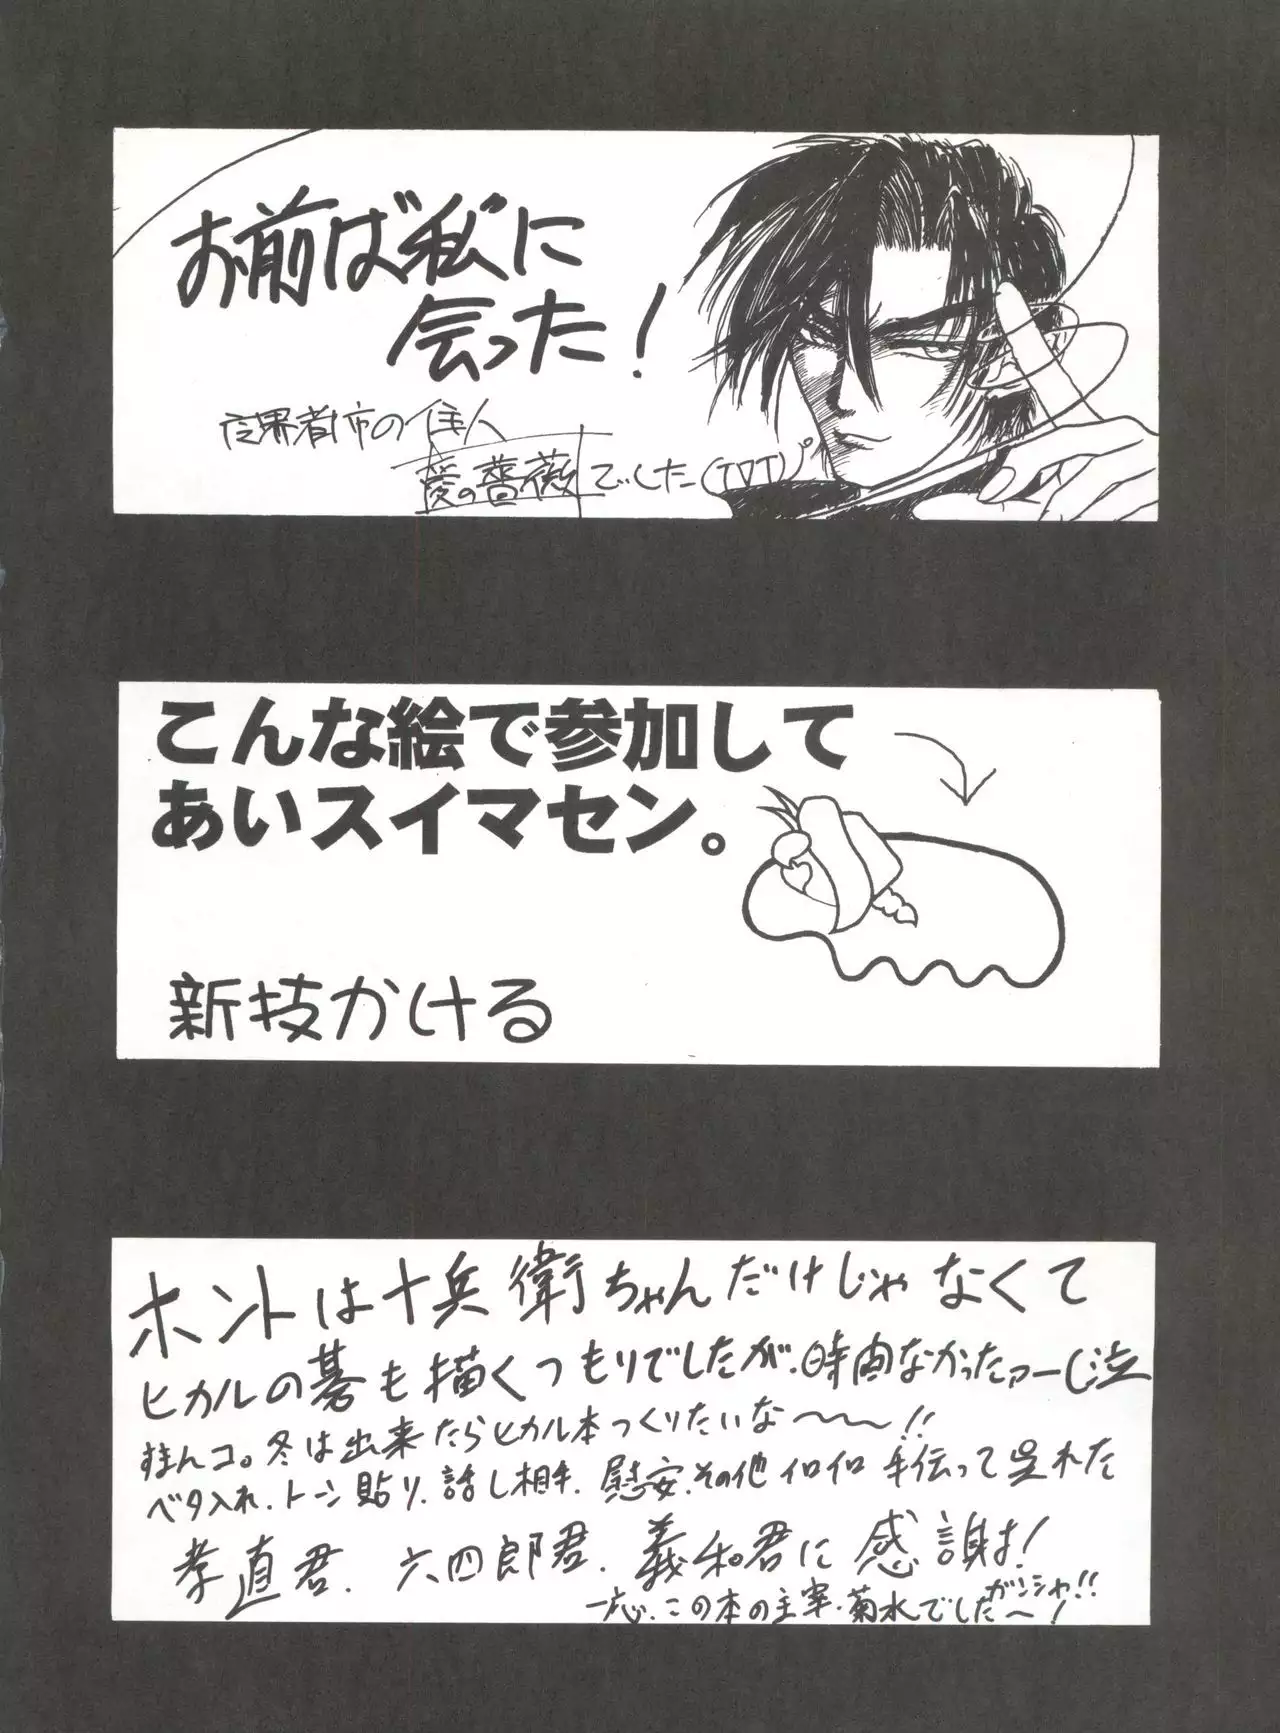 お前は"私"に
会った!
魔界都市の住人
愛の薔薇でした(T▽T)
こんな絵で参加して
あいスイマセン。
新技かける
ホントは十兵衛ちゃんだけじゃなくて
ヒカルの碁も描くつもりでしたが、時間なかったァー(泣
すまんコ。冬は出来たらヒカル本つくりたいな〜〜!!
ベタ入れ、トーン貼り、話し相手、慰安、その他イロイロ手伝って呉れた
孝直君、六四郎君、義和君に感謝!
ガンシャ!!
一応、この本の主宰・菊水でした〜!